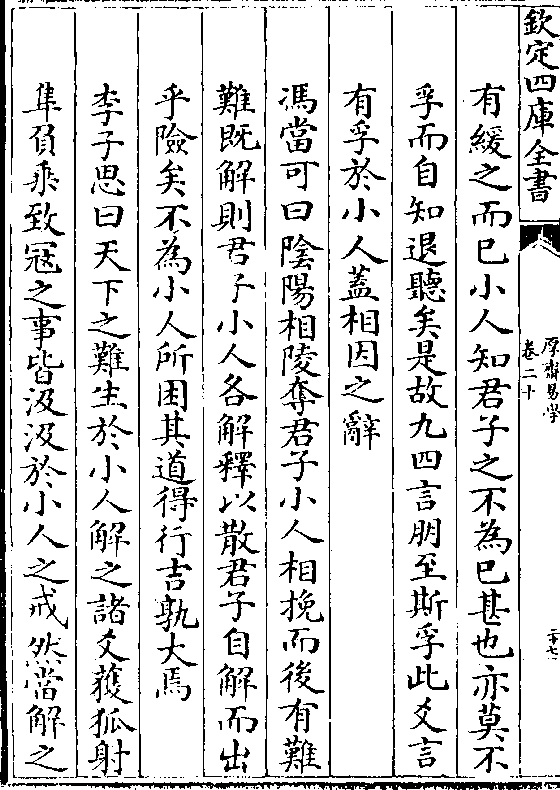 欽定四庫全書
厚齋易學
卷二十
二十七
有緩之而已小人知君子之不為已甚也亦莫不
孚而自知退聽矣是故九四言朋至斯孚此爻言
有孚於小人蓋相因之辭
馮當可曰陰陽相陵奪君子小人相挽而後有難
難既解則君子小人各解釋以散君子自解而出
乎險矣不為小人所困其道得行吉孰大焉
李子思曰天下之難生於小人解之諸爻獲狐射
隼負乘致寇之事皆汲汲於小人之戒然當解之